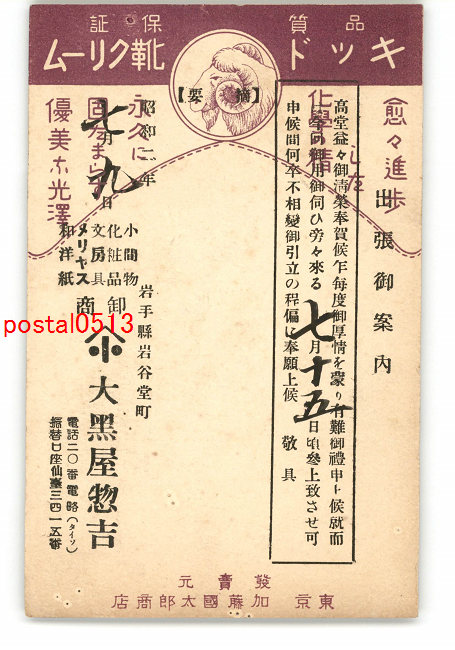 品質保証
キッド靴クリーム
【摘要】
愈々進歩
した
化學の精
永久に
固まらず
優美な光澤
出張御案内
高堂益々御淸榮奉賀候乍毎度御厚情を蒙り有難御禮申上候就而
今回御用御伺ひ旁々來る七月十五日頃參上致させ可
申候間何卒不相變御引立の程偏に奉願上候 敬具
昭和二年
七月九日
岩手縣岩谷堂町
小間物
化粧品
文房具
メリヤス
和洋紙
卸商
大黑屋惣吉
電話二〇番電略(タイソ)
振替口座仙臺三四一五番
發賣元
東京 加藤國太郎商店
postal0513